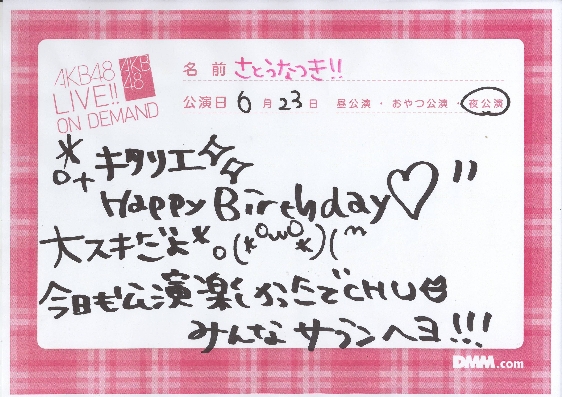 AKB48
LIVE!!
ON DEMAND
AKB
48
名前 さとうなつき!!
公演日 6月23日 昼公演・おやつ公演・夜公演
キタリエ☆☆
Happy Birthday♡"
大スキだよ*。(*^ω^*)(^
今日も公演楽しかったでCHU
みんな サランヘヨ!!!
DMM.com